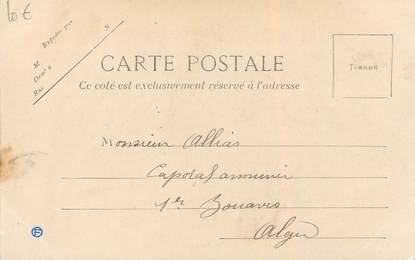 10 €
M
Expédié par
Demt à
Rue
N
CARTE POSTALE
Ce coté est exclusivement réservé à l'adresse
TIMBRE
Monsieur Allias
Caporal armurier
1er Zouaves
Alger